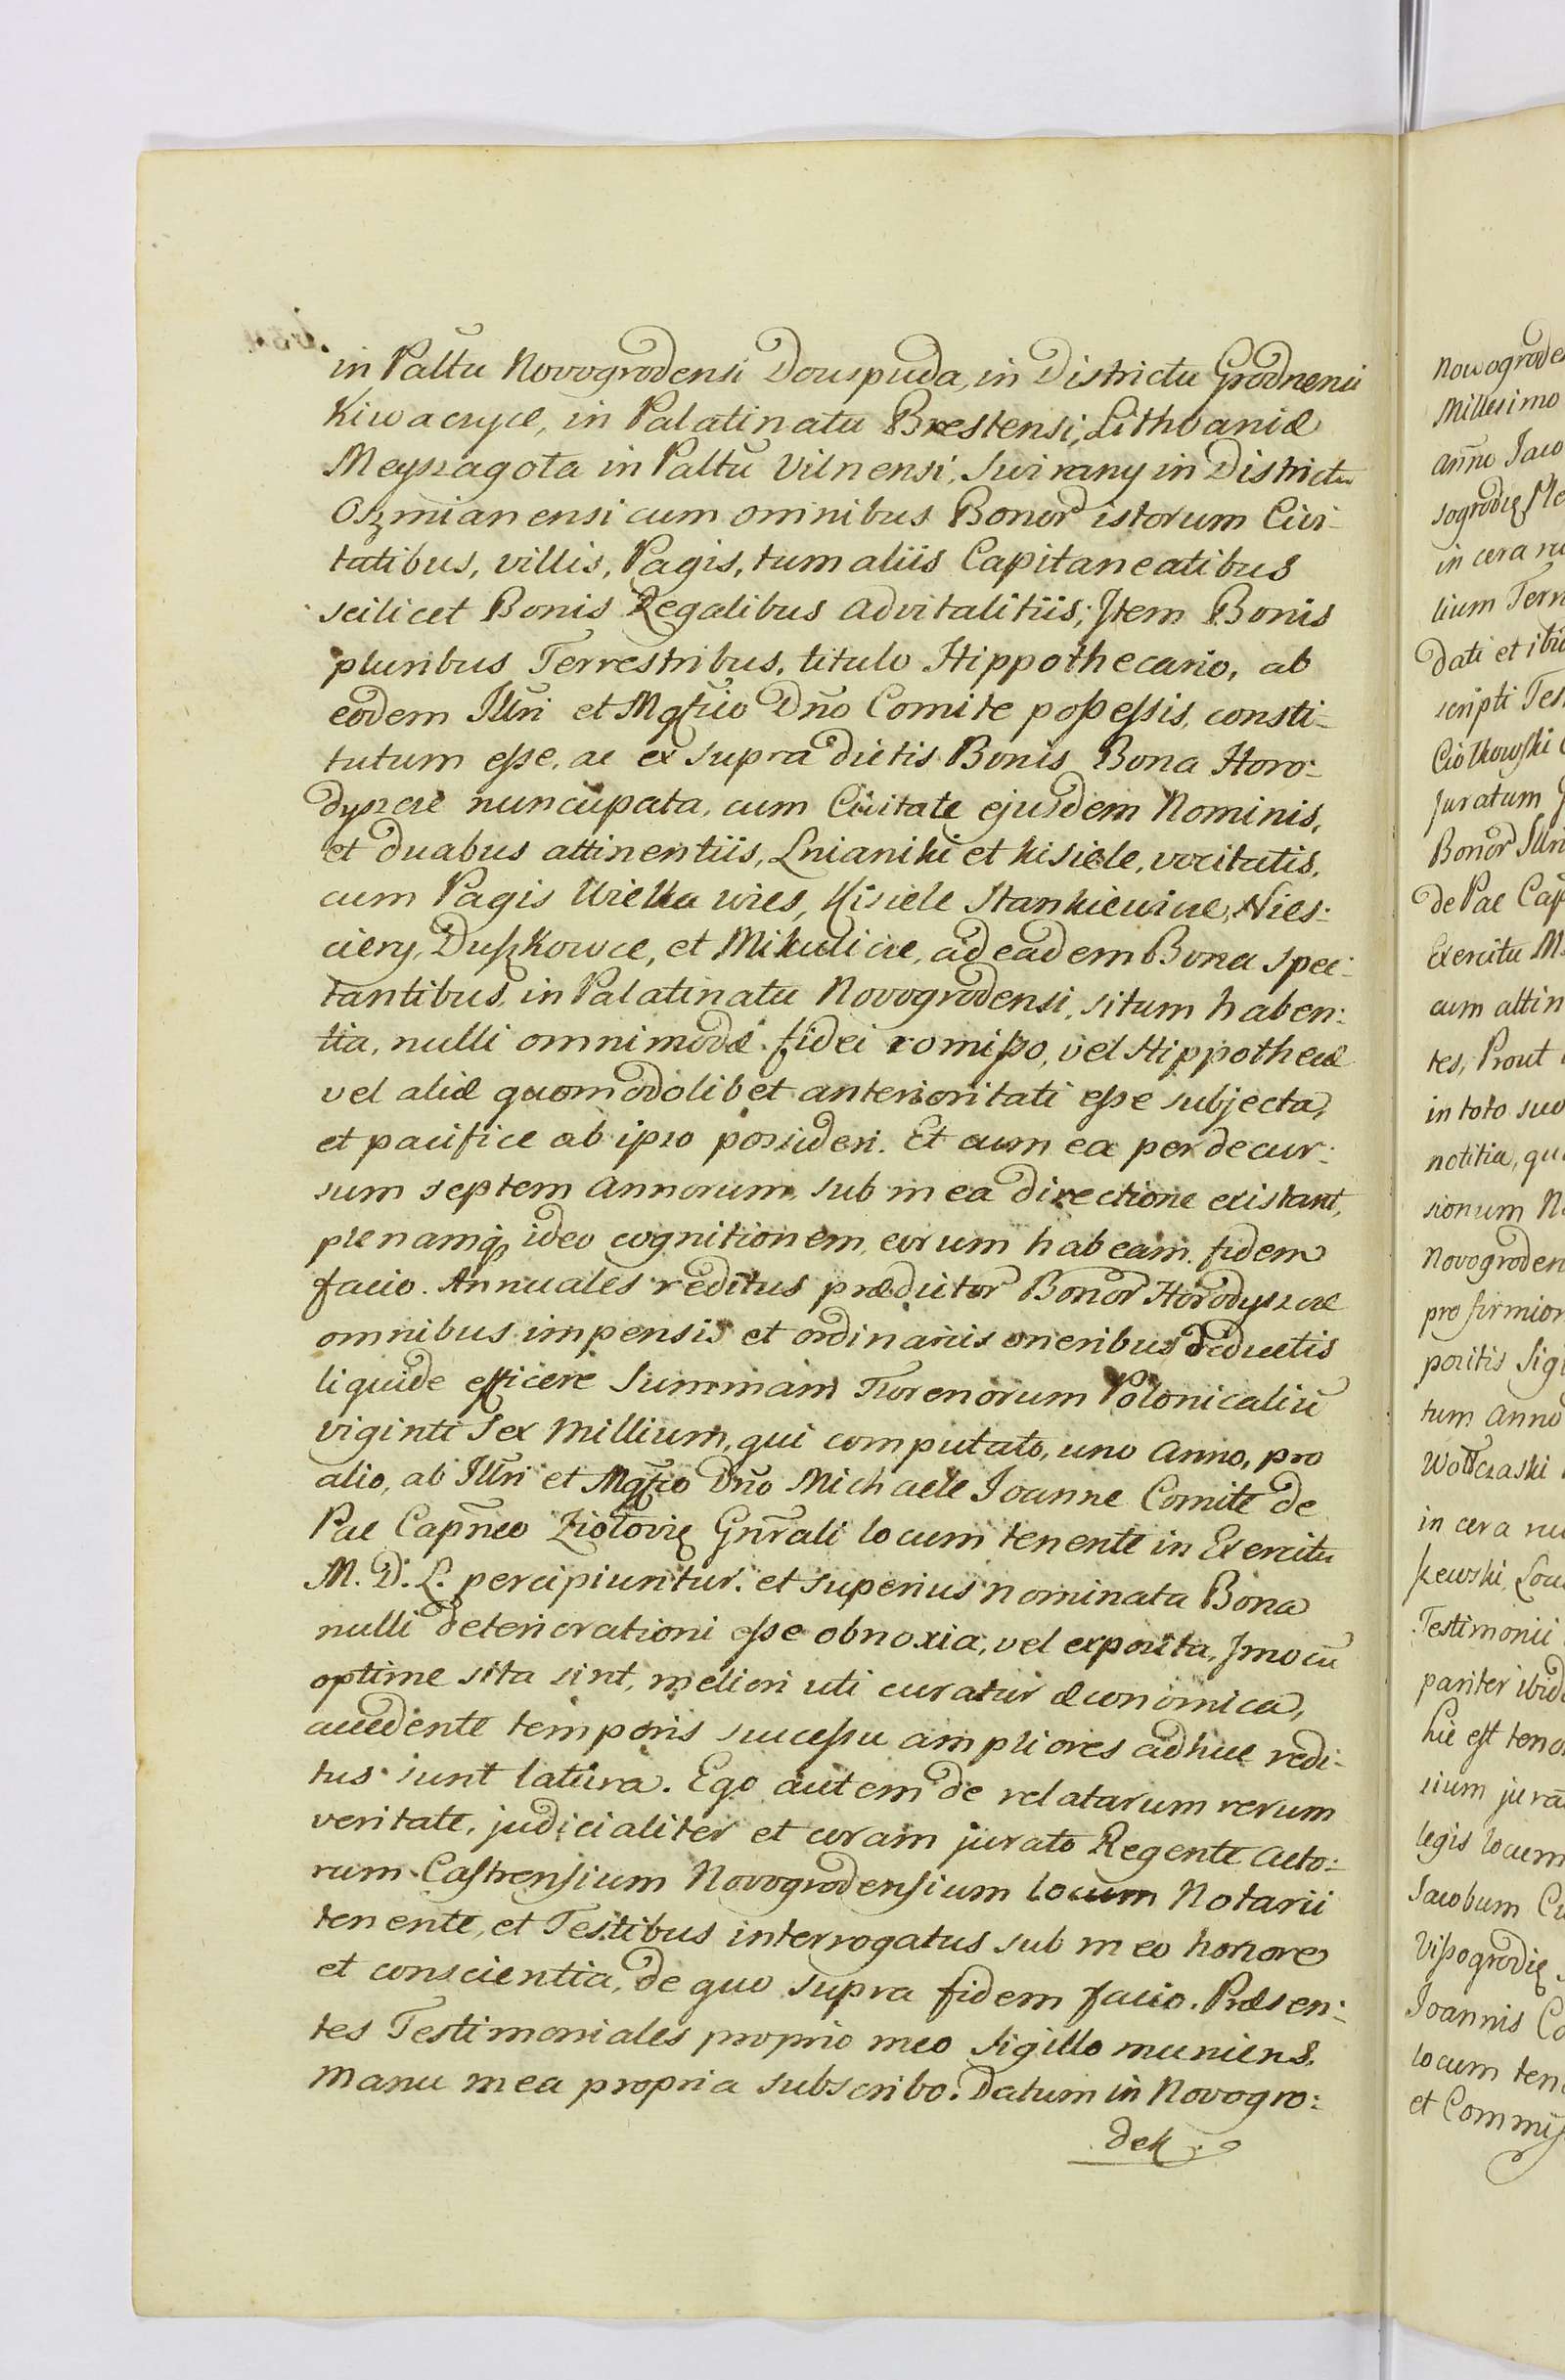 in Paltũ Novogrodensi Douspuda, in Districtu Grodnensi
Kiwaczyce, in Palatinatu Brestensi, Lithvaniæ
Meyszagota in Paltũ Vilnensi, Swirany in Districtu
Oszmianensi cum omnibus Bonor istorum Civi-
tatibus, villis, Pagis, tum aliis Capitaneatibus
scilicet Bonis Regalibus advitalitiis; Item Bonis
pluribus Terrestribus, titulo Hippothecario, ab
eodem Illri et Mgfico Dño Comite poßeßis, consti-
tutum eße, ac ex supra dictis Bonis Bona Horo-
dyszcze nuncupata, cum Civitate ejusdem Nominis,
et duabus attinentiis, Lnianiki et Kisiele, vocitatis,
cum Pagis Wielka wies, Kisiele Stankiewicze, Nies-
ciery, Duszkowce, et Mikulicze, ad eadem Bona spec-
tantibus, in Palatinatu Novogrodensi, situm haben:
tia, nulli omnimodæ fidei comißo, vel Hippothecæ
vel aliæ quomodolibet anterioritati eße subjecta,
et pacifice ab ipso possideri. Et cum ea per decur-
sum septem Annorum, sub mea directione existant,
plenamq, ideo cognitionem, eorum habeam, fidem
facio. Annuales reditus prædictor Bonor Horodyszcze
omnibus impensis et ordinariis oneribus deductis
liquide efficere Summam Florenorum Polonicaliũ
viginti Sex Millium, qui computato, uno Anno, pro
alio, ab Illri et Mgfico Dño Michaele Joanne Comite de
Pac Capñeo Ziołovię Gnrali locum tenente in Exercitu
M. D. L. percipiuntur, et superius nominata Bona
nulli deteriorationi eße obnoxia, vel exposita, Imo cũ
optime sita sint, meliori uti curatur œconomica,
accedente temporis succeßu ampliores adhuc redi-
tus sunt latura. Ego autem de relatarum rerum
veritate, judicialiter et coram jurato Regente Acto-
rum Castrensium Novogrodensium locum Notarii
tenente, et Testibus interrogatus sub meo honore
et conscientia, de quo supra fidem facio. Præsen:
tes Testimoniales proprio meo Sigillo muniens,
Manu mea propria subscribo. Datum in Novogro:
dek
Nowogrode
Millesimo
añno Jaco
in cera ru
lium Terr
Dati et ibi
scripti Tes
Ciolkowski
Juratum
Bonor Illri
de Pac Cap
Exercitu M.
cum attin
tes, Prout
in toto suo
notitia, qu
sionum N
Novogroden
pro firmior
positis Sigi
tum Anno
in cera ru
Testimonii
pariter ibid
hic est teno
legis locum
Jacobum
Joannis Co
locum ten
et Commis